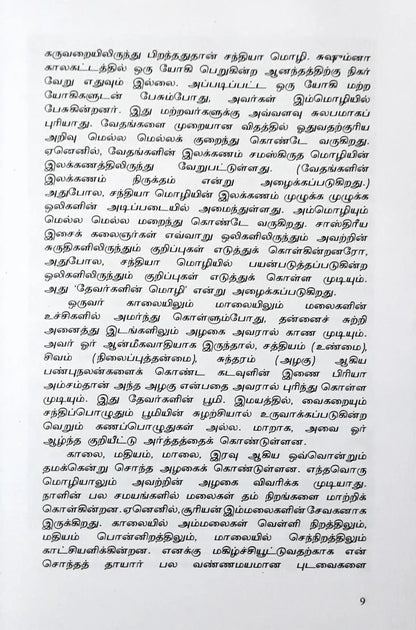 கருவறையிலிருந்து பிறந்ததுதான் சந்தியா மொழி. சுஷும்னா
காலகட்டத்தில் ஒரு யோகி பெறுகின்ற ஆனந்தத்திற்கு நிகர்
வேறு எதுவும் இல்லை. அப்படிப்பட்ட ஒரு யோகி மற்ற
யோகிகளுடன் பேசும்போது, அவர்கள் இம்மொழியில்
பேசுகின்றனர். இது மற்றவர்களுக்கு அவ்வளவு சுலபமாகப்
புரியாது. வேதங்களை முறையான விதத்தில் ஓதுவதற்குரிய
அறிவு மெல்ல மெல்லக் குறைந்து கொண்டே வருகிறது.
ஏனெனில், வேதங்களின் இலக்கணம் சமஸ்கிருத மொழியின்
இலக்கணத்திலிருந்து வேறுபட்டுள்ளது. (வேதங்களின்
இலக்கணம் நிருக்தம் என்று அழைக்கப்படுகிறது.)
அதுபோல, சந்தியா மொழியின் இலக்கணம் முழுக்க முழுக்க
ஒலிகளின் அடிப்படையில் அமைந்துள்ளது. அம்மொழியும்
மெல்ல மெல்ல மறைந்து கொண்டே வருகிறது. சாஸ்திரீய
இசைக் கலைஞர்கள் எவ்வாறு ஒலிகளிலிருந்தும் அவற்றின்
சுருதிகளிலிருந்தும் குறிப்புகள் எடுத்துக் கொள்கின்றனரோ,
அதுபோல, சந்தியா மொழியில் பயன்படுத்தப்படுகின்ற
ஒலிகளிலிருந்தும் குறிப்புகள் எடுத்துக் கொள்ள முடியும்.
அது 'தேவர்களின் மொழி' என்று அழைக்கப்படுகிறது.
ஒருவர் காலையிலும் மாலையிலும் மலைகளின்
உச்சிகளில் அமர்ந்து கொள்ளும்போது, தன்னைச் சுற்றி
அனைத்து இடங்களிலும் அழகை அவரால் காண முடியும்.
அவர் ஓர் ஆன்மீகவாதியாக இருந்தால், சத்தியம் (உண்மை),
சிவம் (நிலைப்புத்தன்மை), சுந்தரம் (அழகு) ஆகிய
பண்புநலன்களைக் கொண்ட கடவுளின் இணை பிரியா
அம்சம்தான் அந்த அழகு என்பதை அவரால் புரிந்து கொள்ள
முடியும். இது தேவர்களின் பூமி. இமயத்தில், வைகறையும்
சந்திப்பொழுதும் பூமியின் சுழற்சியால் உருவாக்கப்படுகின்ற
வெறும் கணப்பொழுதுகள் அல்ல. மாறாக, அவை ஓர்
ஆழ்ந்த குறியீட்டு அர்த்தத்தைக் கொண்டுள்ளன.
காலை, மதியம், மாலை, இரவு ஆகிய ஒவ்வொன்றும்
தமக்கென்று சொந்த அழகைக் கொண்டுள்ளன. எந்தவொரு
மொழியாலும் அவற்றின் அழகை விவரிக்க முடியாது.
நாளின் பல சமயங்களில் மலைகள் தம் நிறங்களை மாற்றிக்
கொள்கின்றன. ஏனெனில், சூரியன் இம்மலைகளின் சேவகனாக
இருக்கிறது. காலையில் அம்மலைகள் வெள்ளி நிறத்திலும்,
மதியம் பொன்னிறத்திலும், மாலையில் செந்நிறத்திலும்
காட்சியளிக்கின்றன. எனக்கு மகிழ்ச்சியூட்டுவதற்காக என்
சொந்தத் தாயார் பல வண்ணமயமான புடவைகளை
9